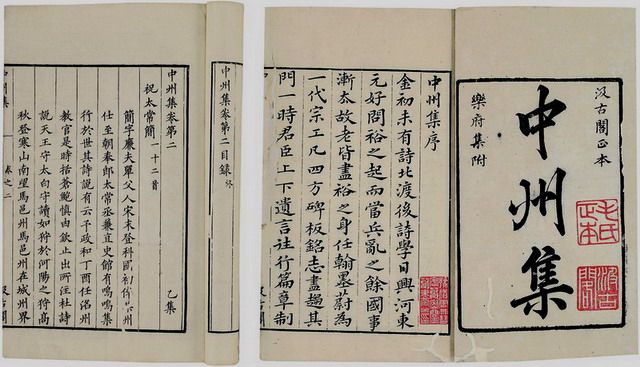 汲古閣正本
中州集
樂府集附
毛氏正本
汲古閣
中州集序
金初未有詩北渡後詩學日興河東
元好問裕之起而當兵亂之餘國事
漸故老皆盡裕之身任翰墨蔚為
一代宗工凡四方碑板銘志盡趨其
門一時君臣上下遺言往行篇章制
中州集卷第二目錄終
中州集卷第二 乙集
祝太常簡一十二首
簡字夫單父人宋末登科國初州
仕至朝奉郎太常丞兼直史館有鳴鳴集
行於世其詩說有云予政和丁酉任洛州
教官是時括蒼鮑慎由欽止出所注杜詩
說天王守太白守讀如狩於河陽之狩高
秋登寒山南望馬邑州馬邑州在城州界
中州集 卷之二 汲古閣